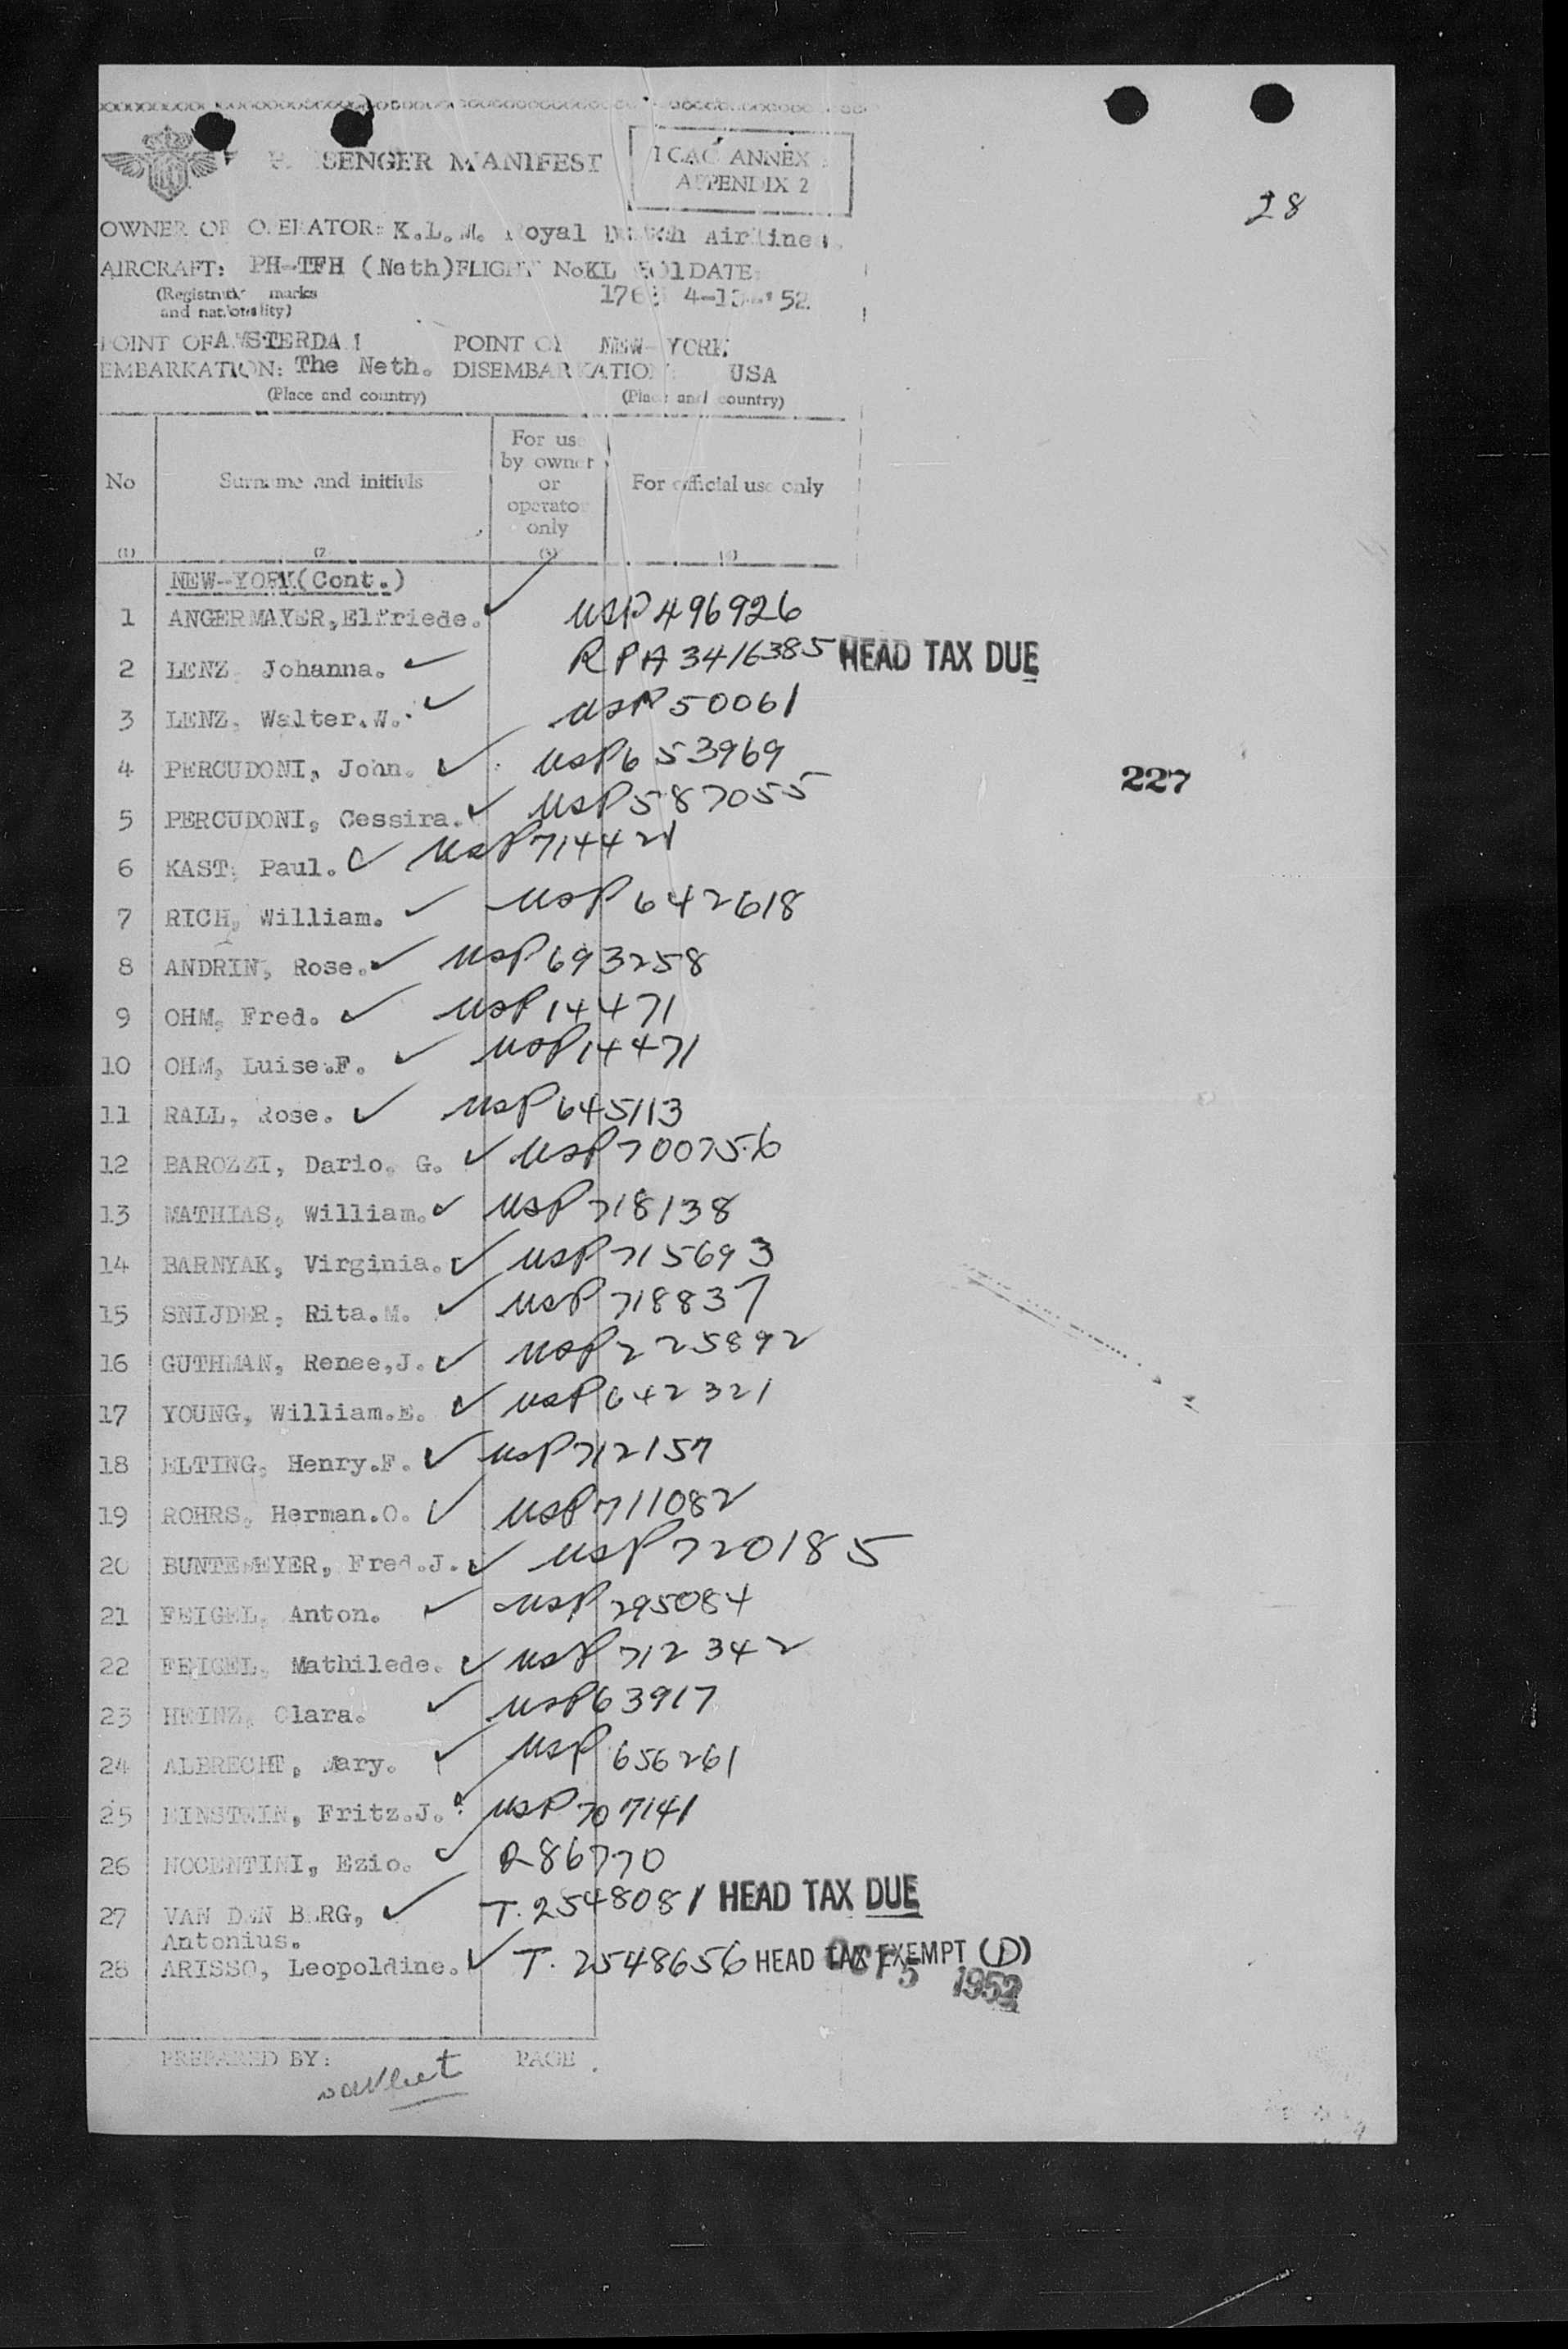 PASSENGER MANIFEST
ICAO ANNEX
APPENDIX 2
28
OWNER OR OPERATOR: K.L.M. Royal Dutch Airlines.
AIRCRAFT: PH-TFH (Neth) FLIGHT No KL DATE:
(Registration marks
and nationality)
52
POINT OF AMSTERDAM POINT OF NEW-YORK
EMBARKATION: The Neth. DISEMBARKATION: USA
(Place and country) (Place and country)
No
Surname and initials
For use
by owner
or
operator
only
For official use only
(1)
NEW-YORK(Cont.)
1 ANGERMAYER, Elfriede. USP 496926
2 LENZ, Johanna. RPA 3416385 HEAD TAX DUE
3 LENZ, Walter.W. USP 50061
4 PERCUDONI, John. USP 653969
227
5 PERCUDONI, Cessira. USP 587055
6 KAST, Paul. USP 714421
7 RICH, William. USP 642618
8 ANDRIN, Rose. USP 693258
9 OHM, Fred. USP 14471
10 OHM, Luise.F. USP 14471
11 RALL, Rose. USP 645113
12 BAROZZI, Dario. G. USP 700756
13 MATHIAS, William. USP 718138
14 BARNYAK, Virginia. USP 715693
15 SNIJDER, Rita.M. USP 718837
16 GUTHMAN, Renee,J. USP 225892
17 YOUNG, William.E. USP 642321
18 ELTING, Henry.F. USP 712157
19 ROHRS, Herman.O. USP 711082
20 BUNTEMEYER, Fred.J. USP 720185
21 FEIGEL, Anton. USP 295084
22 FEIGEL, Mathilede. USP 712342
23 HEINZ, Clara. USP 63917
24 ALBRECHT, Mary. USP 656261
25 EINSTEIN, Fritz.J. USP 707141
26 NOCENTINI, Ezio. R 86770
27 VAN DEN BERG, T. 2548081 HEAD TAX DUE
Antonius.
28 ARISSO, Leopoldine. T. 2548656 HEAD TAX EXEMPT (D)
1952
PREPARED BY: PAGE